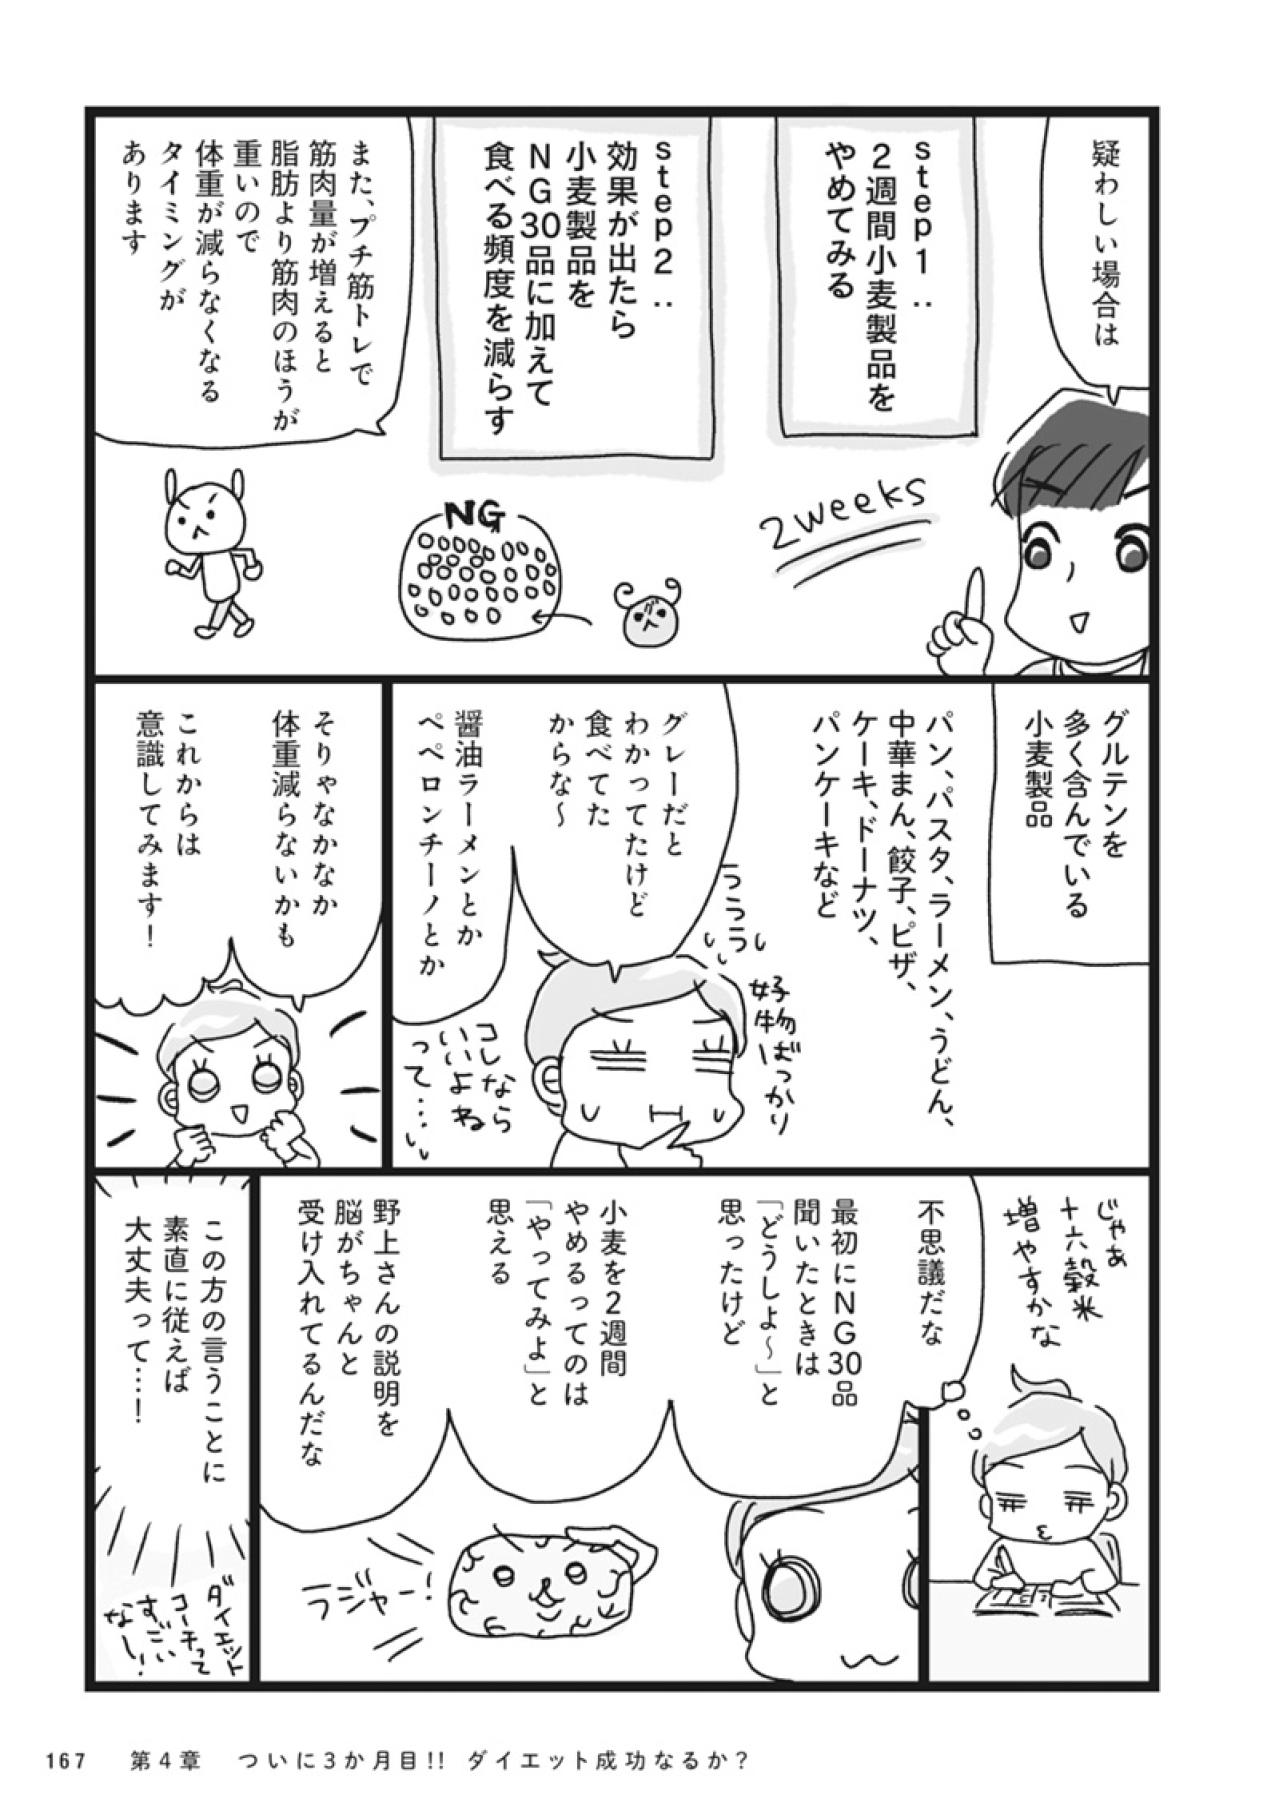 疑わしい場合は
step1：
2週間小麦製品を
やめてみる
step2：
効果が出たら
小麦製品を
NG30品に加えて
食べる頻度を減らす
また、プチ筋トレで
筋肉量が増えると
脂肪より筋肉のほうが
重いので
体重が減らなくなる
タイミングが
あります
2weeks
NG
グルテンを
多く含んでいる
小麦製品
パン、パスタ、ラーメン、うどん、
中華まん、餃子、ピザ、
ケーキ、ドーナツ、
パンケーキなど
グレーだと
わかってたけど
食べてた
からな〜
醤油ラーメンとか
ペペロンチーノとか
ううう
好物ばっかり
コレなら
いいよね
って…
そりゃなかなか
体重減らないかも
これからは
意識してみます！
じゃあ
十六穀米
増やすかな
不思議だな
最初にNG30品
聞いたときは
「どうしよ〜」と
思ったけど
小麦を2週間
やめるってのは
「やってみよ」と
思える
野上さんの説明を
脳がちゃんと
受け入れてるんだな
ラジャー！
この方の言うことに
素直に従えば
大丈夫って…！
ダイエット
コーチって
すごい
なし！
167 第4章 ついに3か月目!! ダイエット成功なるか？